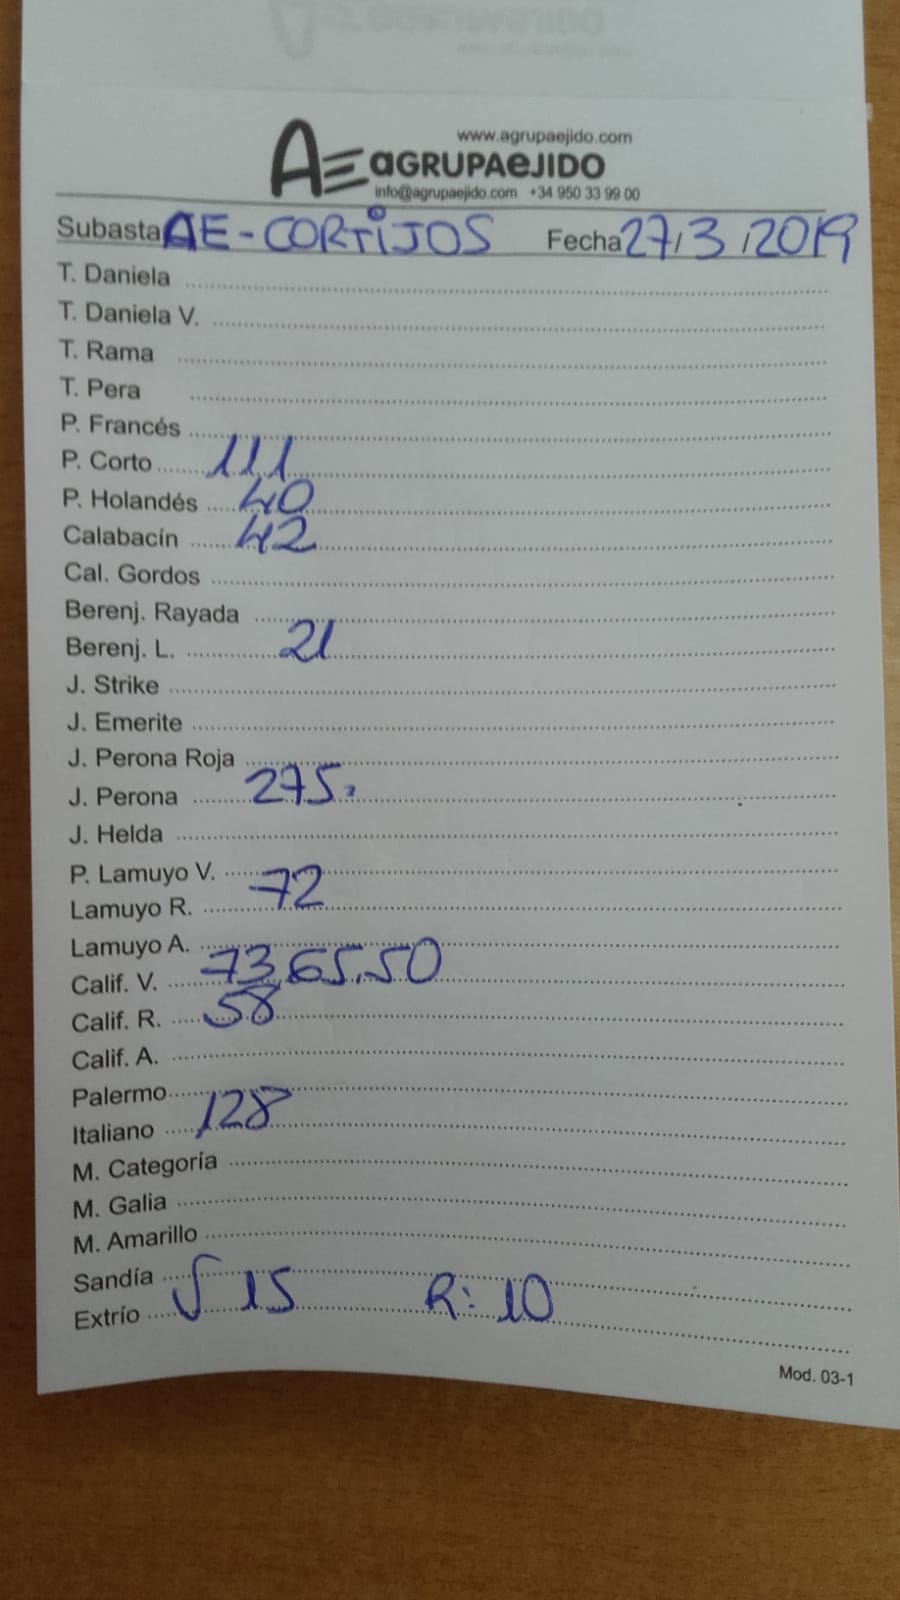 www.agrupaejido.com
AE aGRUPAeJIDO
info@agrupaejido.com +34 950 33 99 00
Subasta AE-CORTIJOS Fecha 27/3/2019
T. Daniela
T. Daniela V.
T. Rama
T. Pera
P. Francés
P. Corto 111
P. Holandés 40
Calabacín 42
Cal. Gordos
Berenj. Rayada
Berenj. L. 21
J. Strike
J. Emerite
J. Perona Roja
J. Perona 275
J. Helda
P. Lamuyo V.
Lamuyo R. 72
Lamuyo A.
Calif. V. 73,65,50
Calif. R. 58
Calif. A.
Palermo
Italiano 128
M. Categoría
M. Galia
M. Amarillo
Sandía
Extrío V 15 R: 10
Mod. 03-1